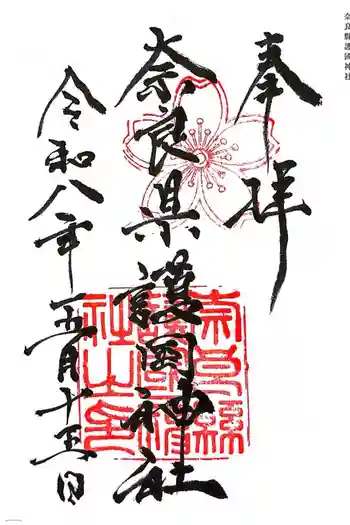 奈良縣護國神社
奉拝
奈良県護国神社
奈良縣
護國神
社之印
令和八年 五月十五日